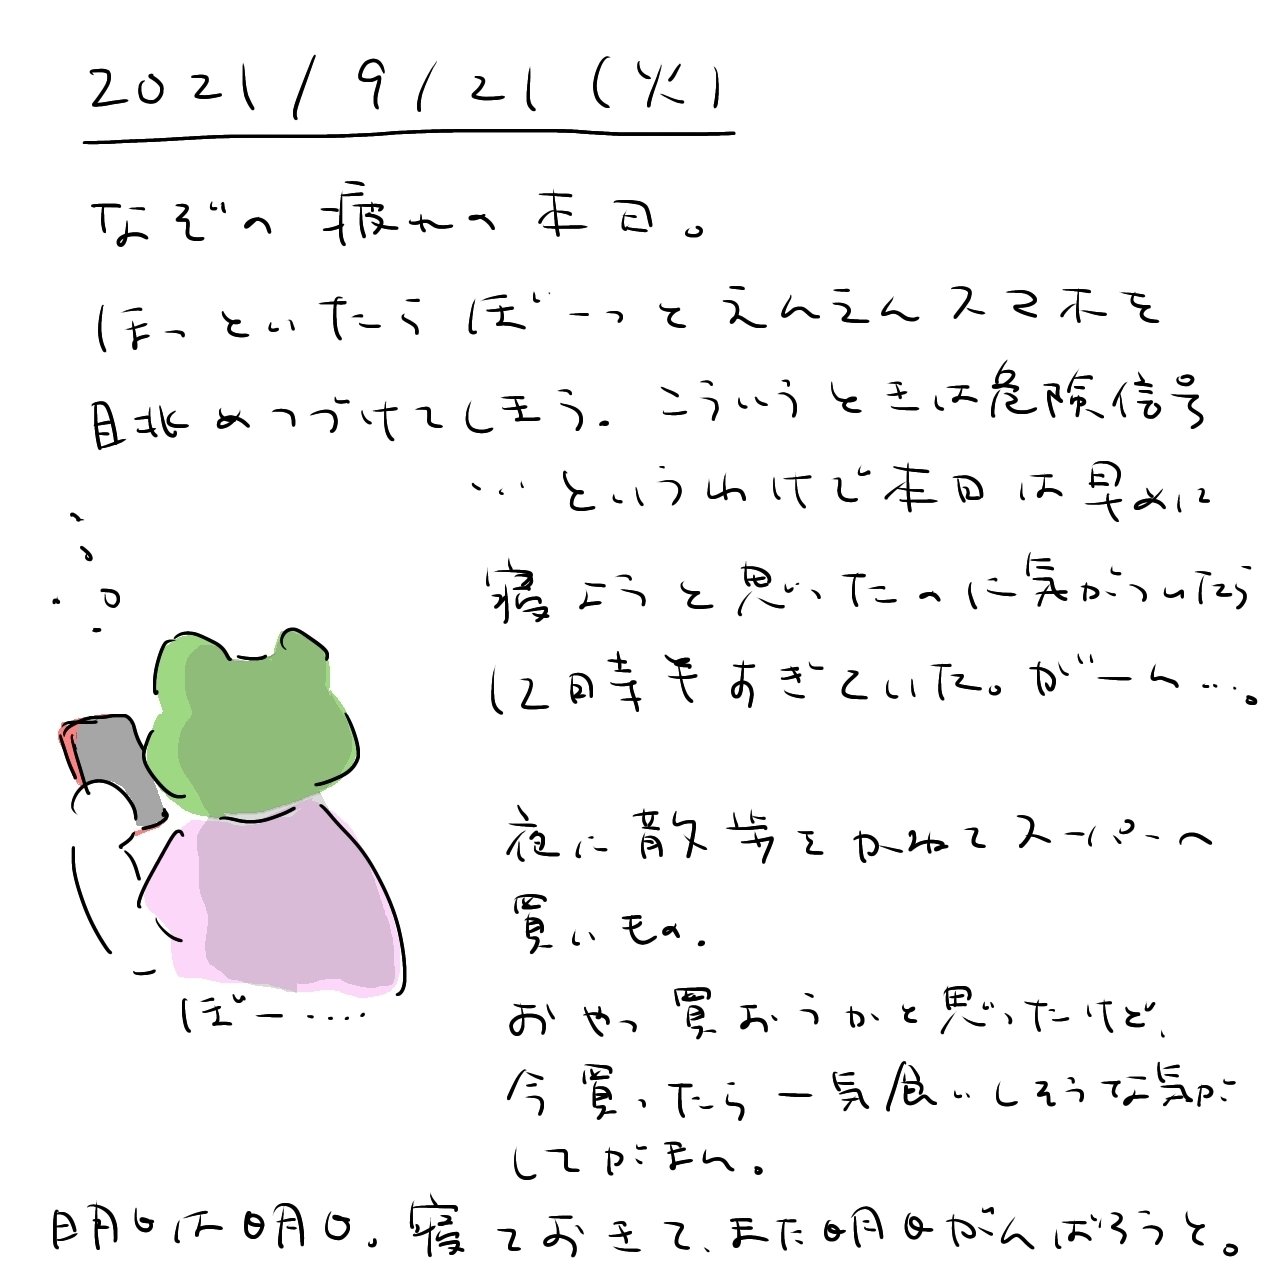 2021/9/21(火)
なぞの疲れの本日。
ほっといたらぼーっとえんえんスマホを
眺めつづけてしまう。こういうときは危険信号
…というわけで本日は早めに
寝ようと思ったのに気がついたら
12時半もすぎていた。がーん…。
夜に散歩をかねてスーパーへ
買いもの。
おやつ買おうかと思ったけど、
今買ったら一気食いしそうな気が
してがまん。
ぼー……
明日は明日。寝ておきて、また明日がんばろうと。